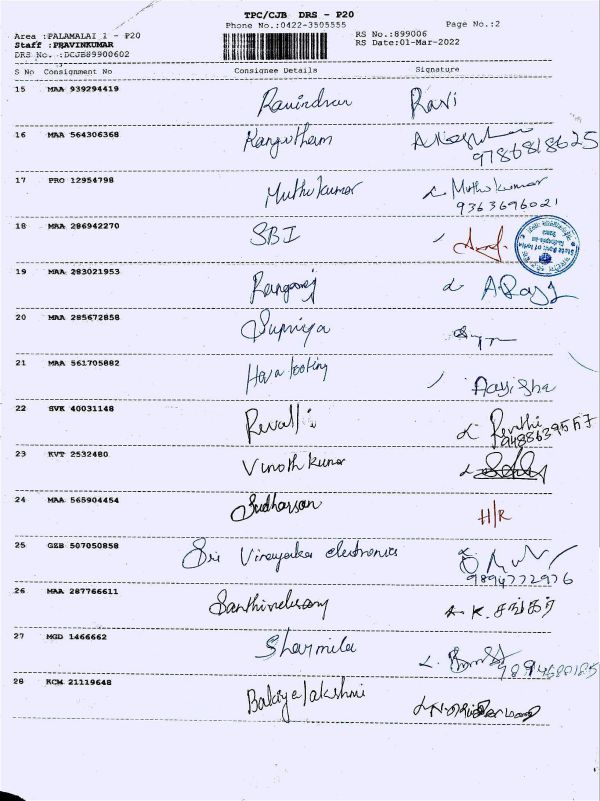 TPC/CJB DRS - P20
Phone No.:0422-3505555
Page No.:2
Area :PALAMALAI 1 - P20
RS No.:899006
Staff :PRAVINKUMAR
RS Date:01-Mar-2022
DRS No. :DCJB89900602
S No Consignment No Consignee Details Signature
15 MAA 939294419 Ravindran Ravi
16 MAA 564306368
9786818625
17 PRO 12954798 Muthu kumar Muthu kumar
9363696021
18 MAA 286942270 SBI
State Bank of India
19 MAA 283021953 Rangaraj A.Raj
20 MAA 285672858 Supriya
21 MAA 561705882 Aayisha
22 SVK 40031148 Revathi
9488639557
23 KVT 2532480 Vinoth kumar
24 MAA 565904454 Sudharsan H/R
25 GZB 507050858 Sri Vinayaka electronics
9894772976
26 MAA 287766611 K. சங்கர்
27 MGD 1466662 Sharmila
28 KCM 21119648 Bakiyalakshmi